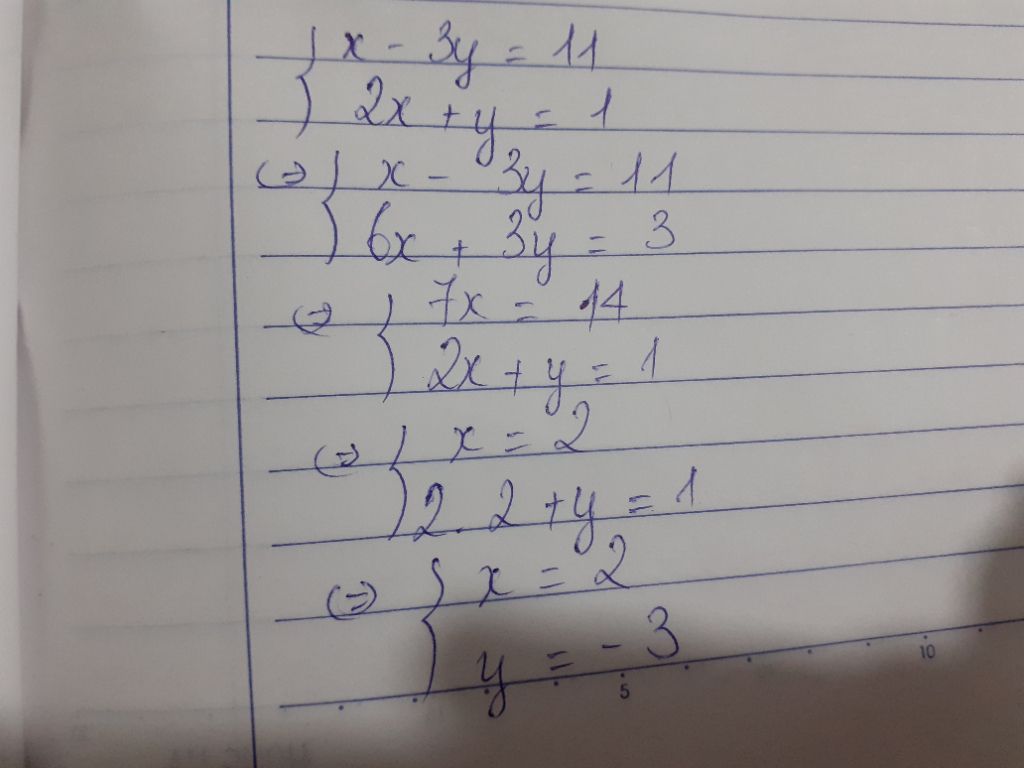 { x - 3y = 11
2x + y = 1
(=) { x - 3y = 11
6x + 3y = 3
(=) { 7x = 14
2x + y = 1
(=) { x = 2
2 . 2 + y = 1
(=) { x = 2
y = - 3
5 10